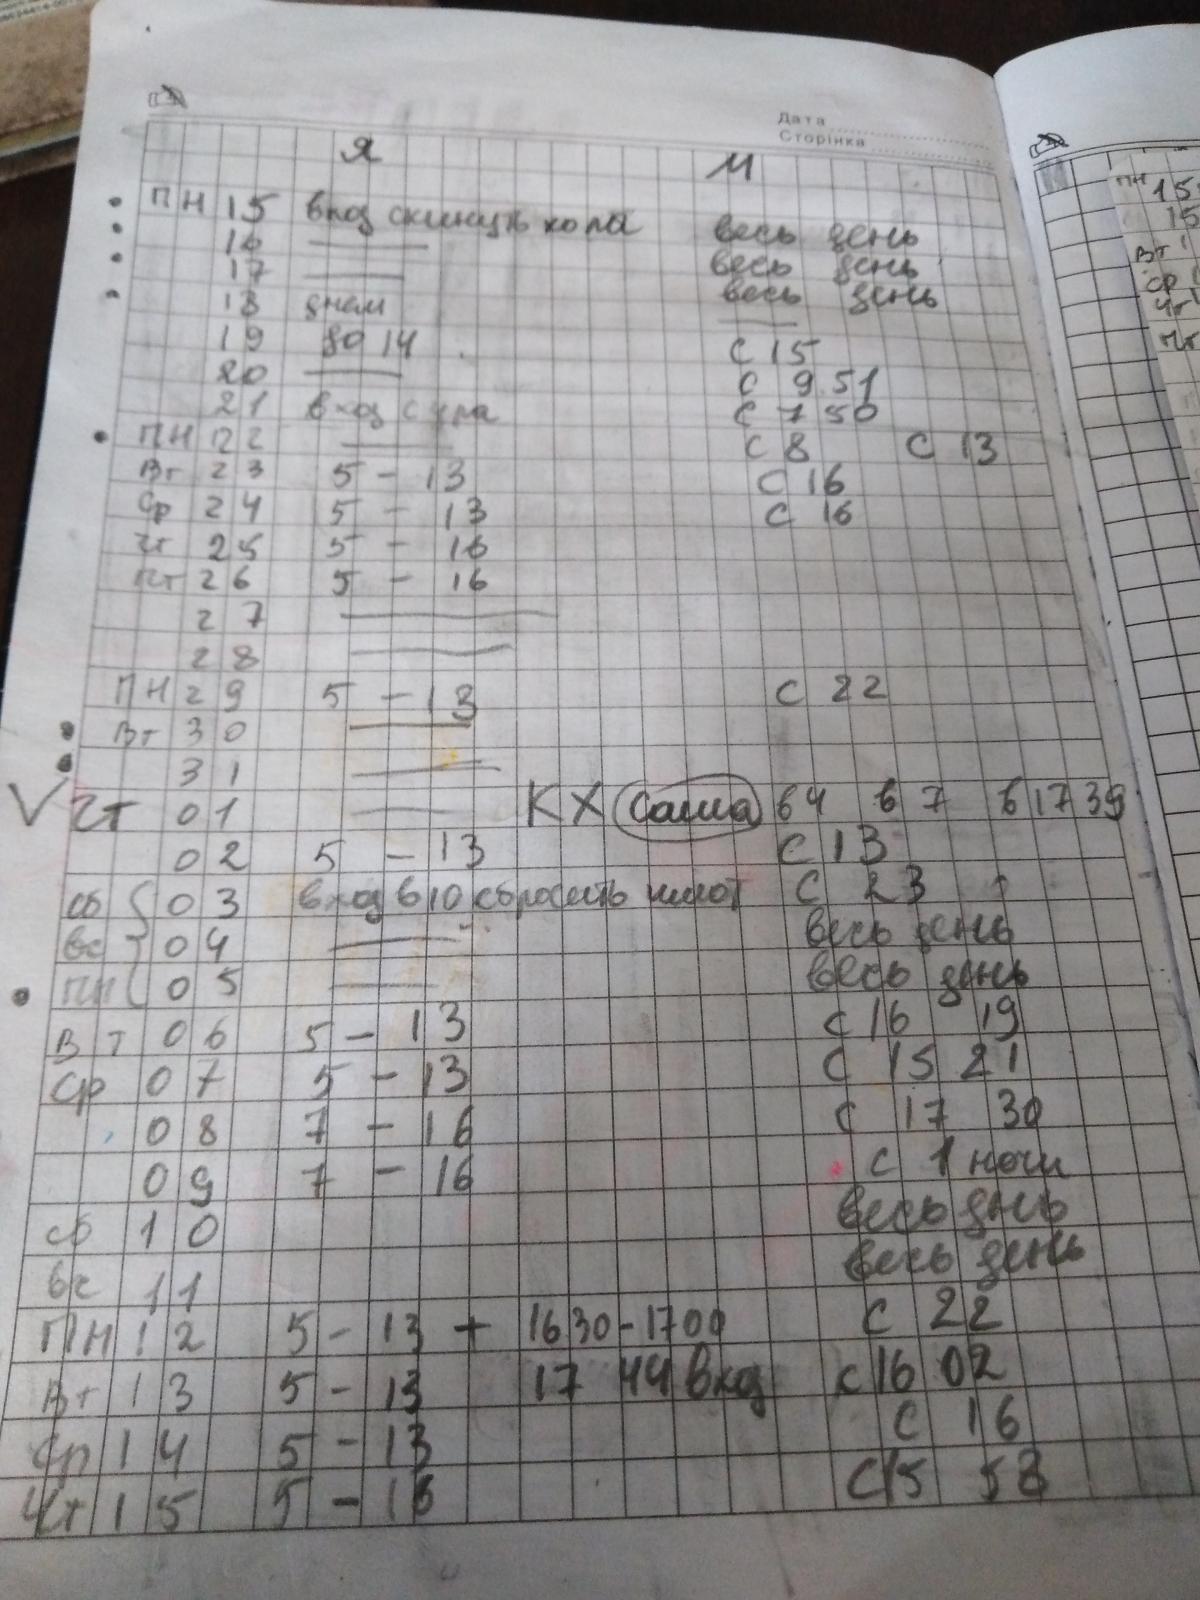 Дата
Сторінка
Я М
ПН 15 вход скинуть кола весь день
16 весь день
17 весь день
18 днем
19 до 14 с 15
20 с 9 51
21 вход с с 7 50
ПН 22 с 8 с 13
Вт 23 5 - 13 с 16
Ср 24 5 - 13 с 16
Чт 25 5 - 16
Пт 26 5 - 16
27
28
ПН 29 5 - 13 с 22
Вт 30
31
V Чт 01 КХ Саша 64 67 61739
02 5 - 13 с 13
сб 03 вход в 10 сбросить с 23
вс 04 весь день
ПН 05 весь день
Вт 06 5 - 13 с 16 19
Ср 07 5 - 13 с 15 21
08 7 - 16 с 17 30
09 7 - 16 с 1 ночи
сб 10 весь день
вс 11 весь день
ПН 12 5 - 13 + 1630 - 1700 с 22
Вт 13 5 - 13 17 44 вход с 16 02
Ср 14 5 - 13 с 16
Чт 15 5 - 16 с 15 53
ПН 15
15
Вт
Ср
Чт
Пт